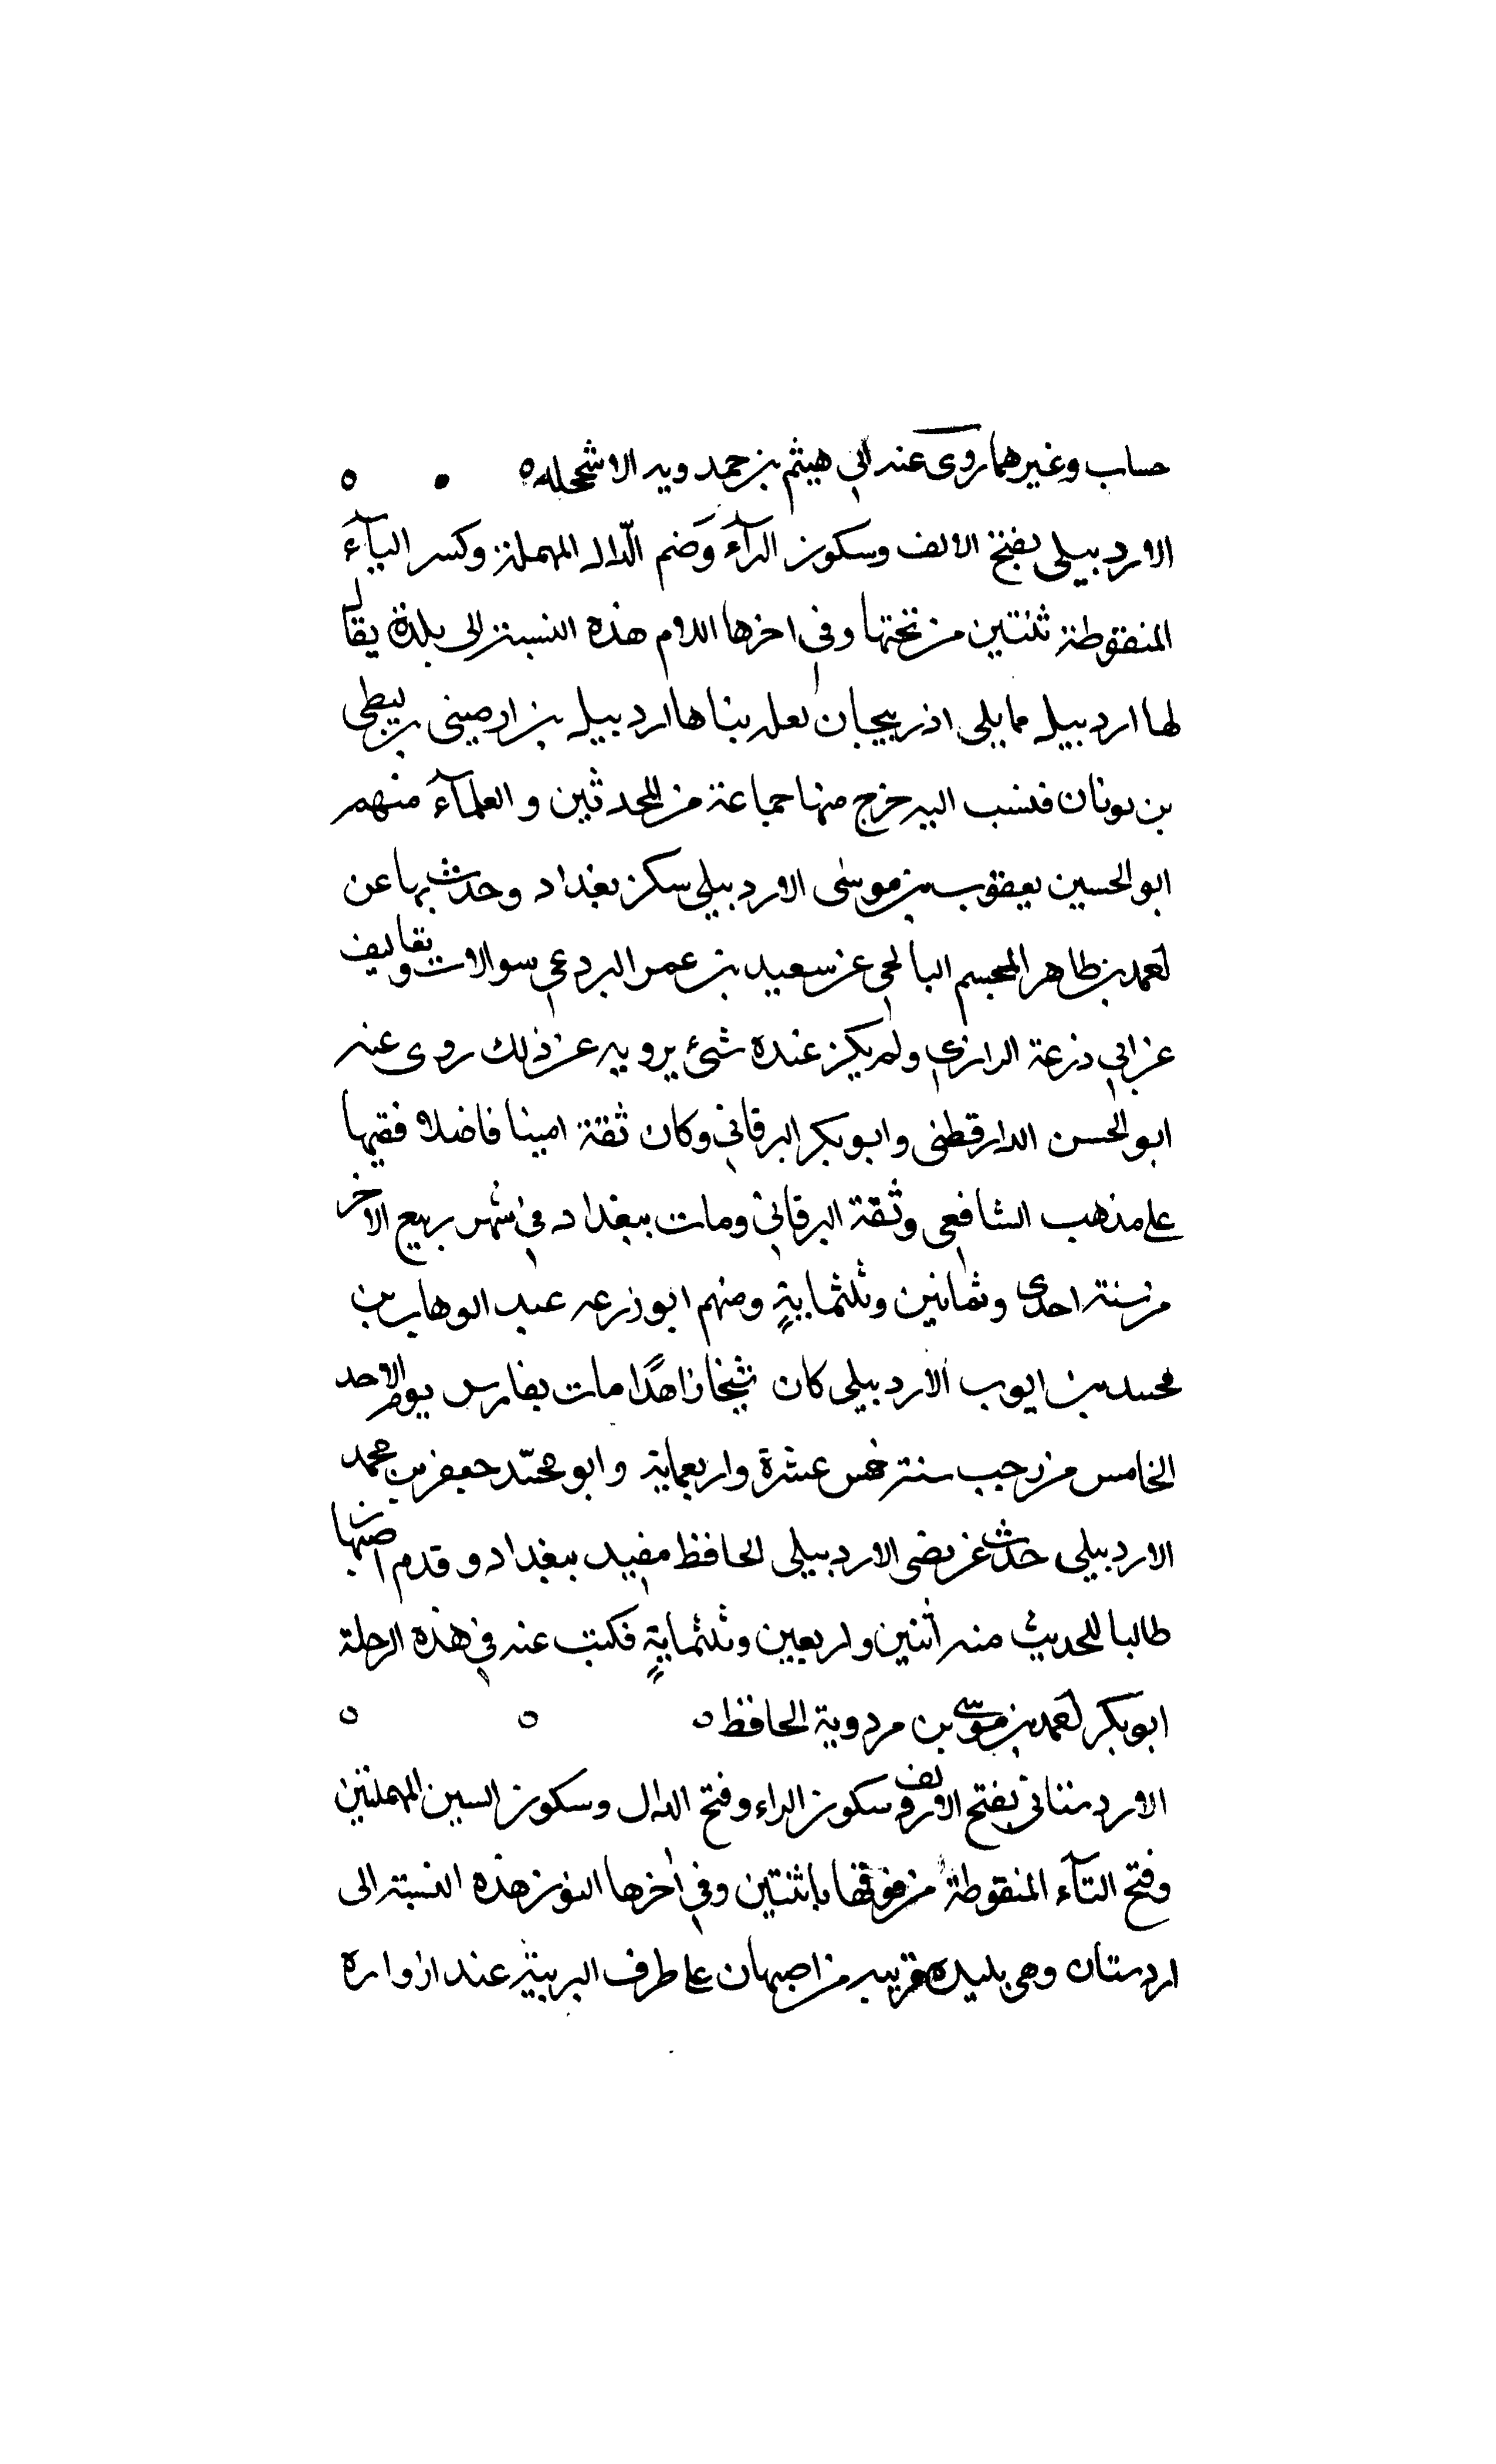 حساب وغيرهما روى عنه ابي هيثم بن حمدويه الاشحله
الاردبيلى بفتح الالف وسكون الرآء وضم الدال المهملة وكسر اليآء
المنقوطة ثنتين من تحتها وفي اخرها اللام هذه النسبة الى بلدة يقال
لها اردبيل مما يلى اذربيجان لعله بناها اردبيل بن ارميني بن ليطى
بن يونان فنسب اليه خرج منها جماعة من المحدثين والعلمآء منهم
ابو الحسين يعقوب بن موسى الاردبيلى سكن بغداد وحدث بها عن
احمد بن طاهر بن سعيد بن عمر البردعي سوالات وتعاليف
عن ابي زرعة الرازي ولم يكن عنده شئ يرويه عن ذلك روى عنه
ابو الحسن الدارقطنى وابو بكر البرقاني وكان ثقة امينا فاضلا فقيها
على مذهب الشافعي وثقة البرقاني ومات ببغداد في شهر ربيع الاخر
من سنة احدى وثمانين وثلثماية ومنهم ابو زرعه عبد الوهاب بن
محمد بن ايوب الاردبيلى كان شيخا زاهدًا مات بفارس يوم الاحد
الخامس من رجب سنة خمس عشرة واربعماية وابو محمّد جعفر بن محمد
الاردبيلى حدث عن الاردبيلى الحافظ مفيد ببغداد وقدم اصبهان
طالبا للحديث منه اثنين واربعين وثلثمايةٍ فكتب عنه في هذه الرحلة
ابو بكر احمد بن موسى بن مردوية الحافظ
الاردستاني بفتح الالف وسكون الراء وفتح الدال وسكون السين المهملتين
وفتح التآء المنقوطة من فوقها باثنتين وفي اخرها النون هذه النسبة الى
اردستان وهى بليدة قريبه من اصبهان على طرف البرية عند ازواره